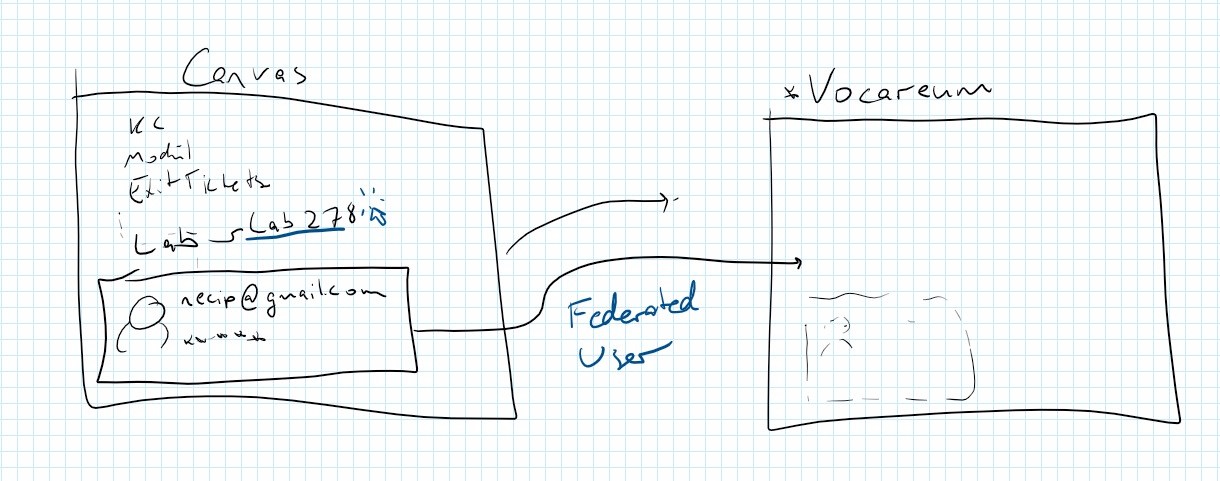 Canvas
KC
Modul
Exit Tickets
Labs Lab 278
necip@gmail.com
*****
Federated
User
* Vocareum